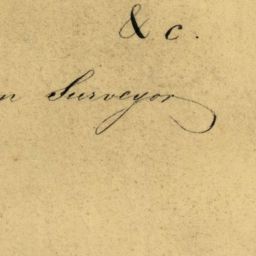 &c.
n Surveyor